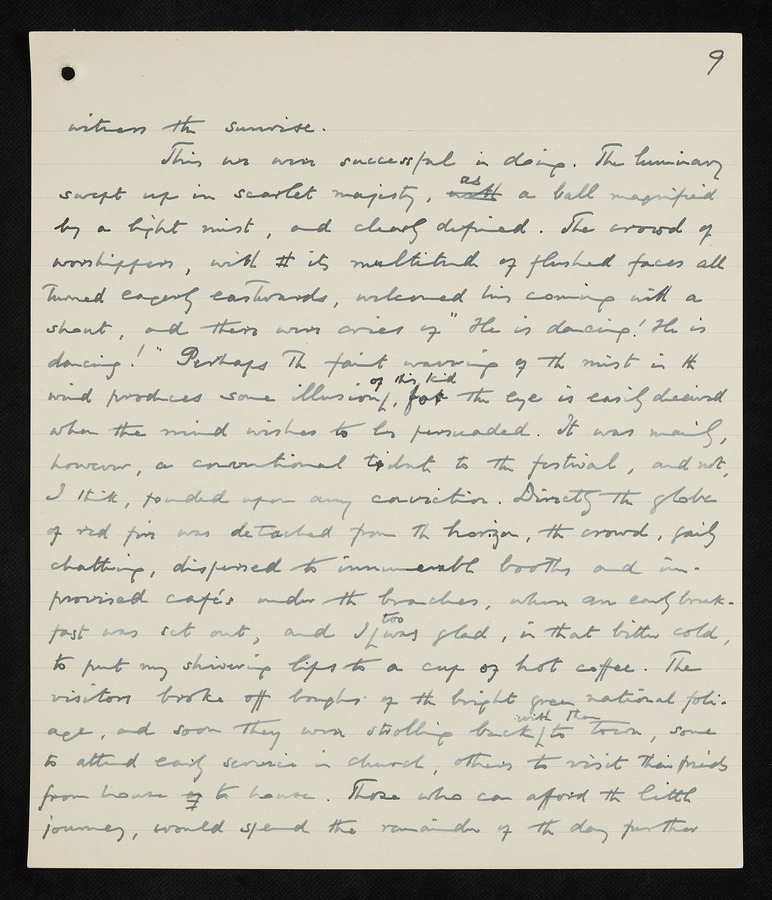 9
witness the sunrise.
This we were successful in doing. The luminary
swept up in scarlet majesty, with as a ball magnified
by a light mist, and clearly defined. The crowd of
worshippers, with its multitude of flushed faces all
turned eagerly eastwards, welcomed his coming with a
shout, and there were cries of "He is dancing! He is
dancing!" Perhaps the faint wavering of the mist in the
wind produces some illusion of this kind, for the eye is easily deceived
when the mind wishes to be persuaded. It was mainly,
however, a conventional tribute to the festival, and not,
I think, founded upon any conviction. Directly the globe
of red fire was detached from the horizon, the crowd, gaily
chatting, dispersed to innumerable booths and im-
provised cafés under the branches, where an early break-
fast was set out, and I too was glad, in that bitter cold,
to put my shivering lips to a cup of hot coffee. The
visitors broke off boughs of the bright green national foli-
age, and soon they were strolling back with them to town, some
to attend early service in church, others to visit their friends
from house to house. Those who can afford the little
journey, would spend the remainder of the day further